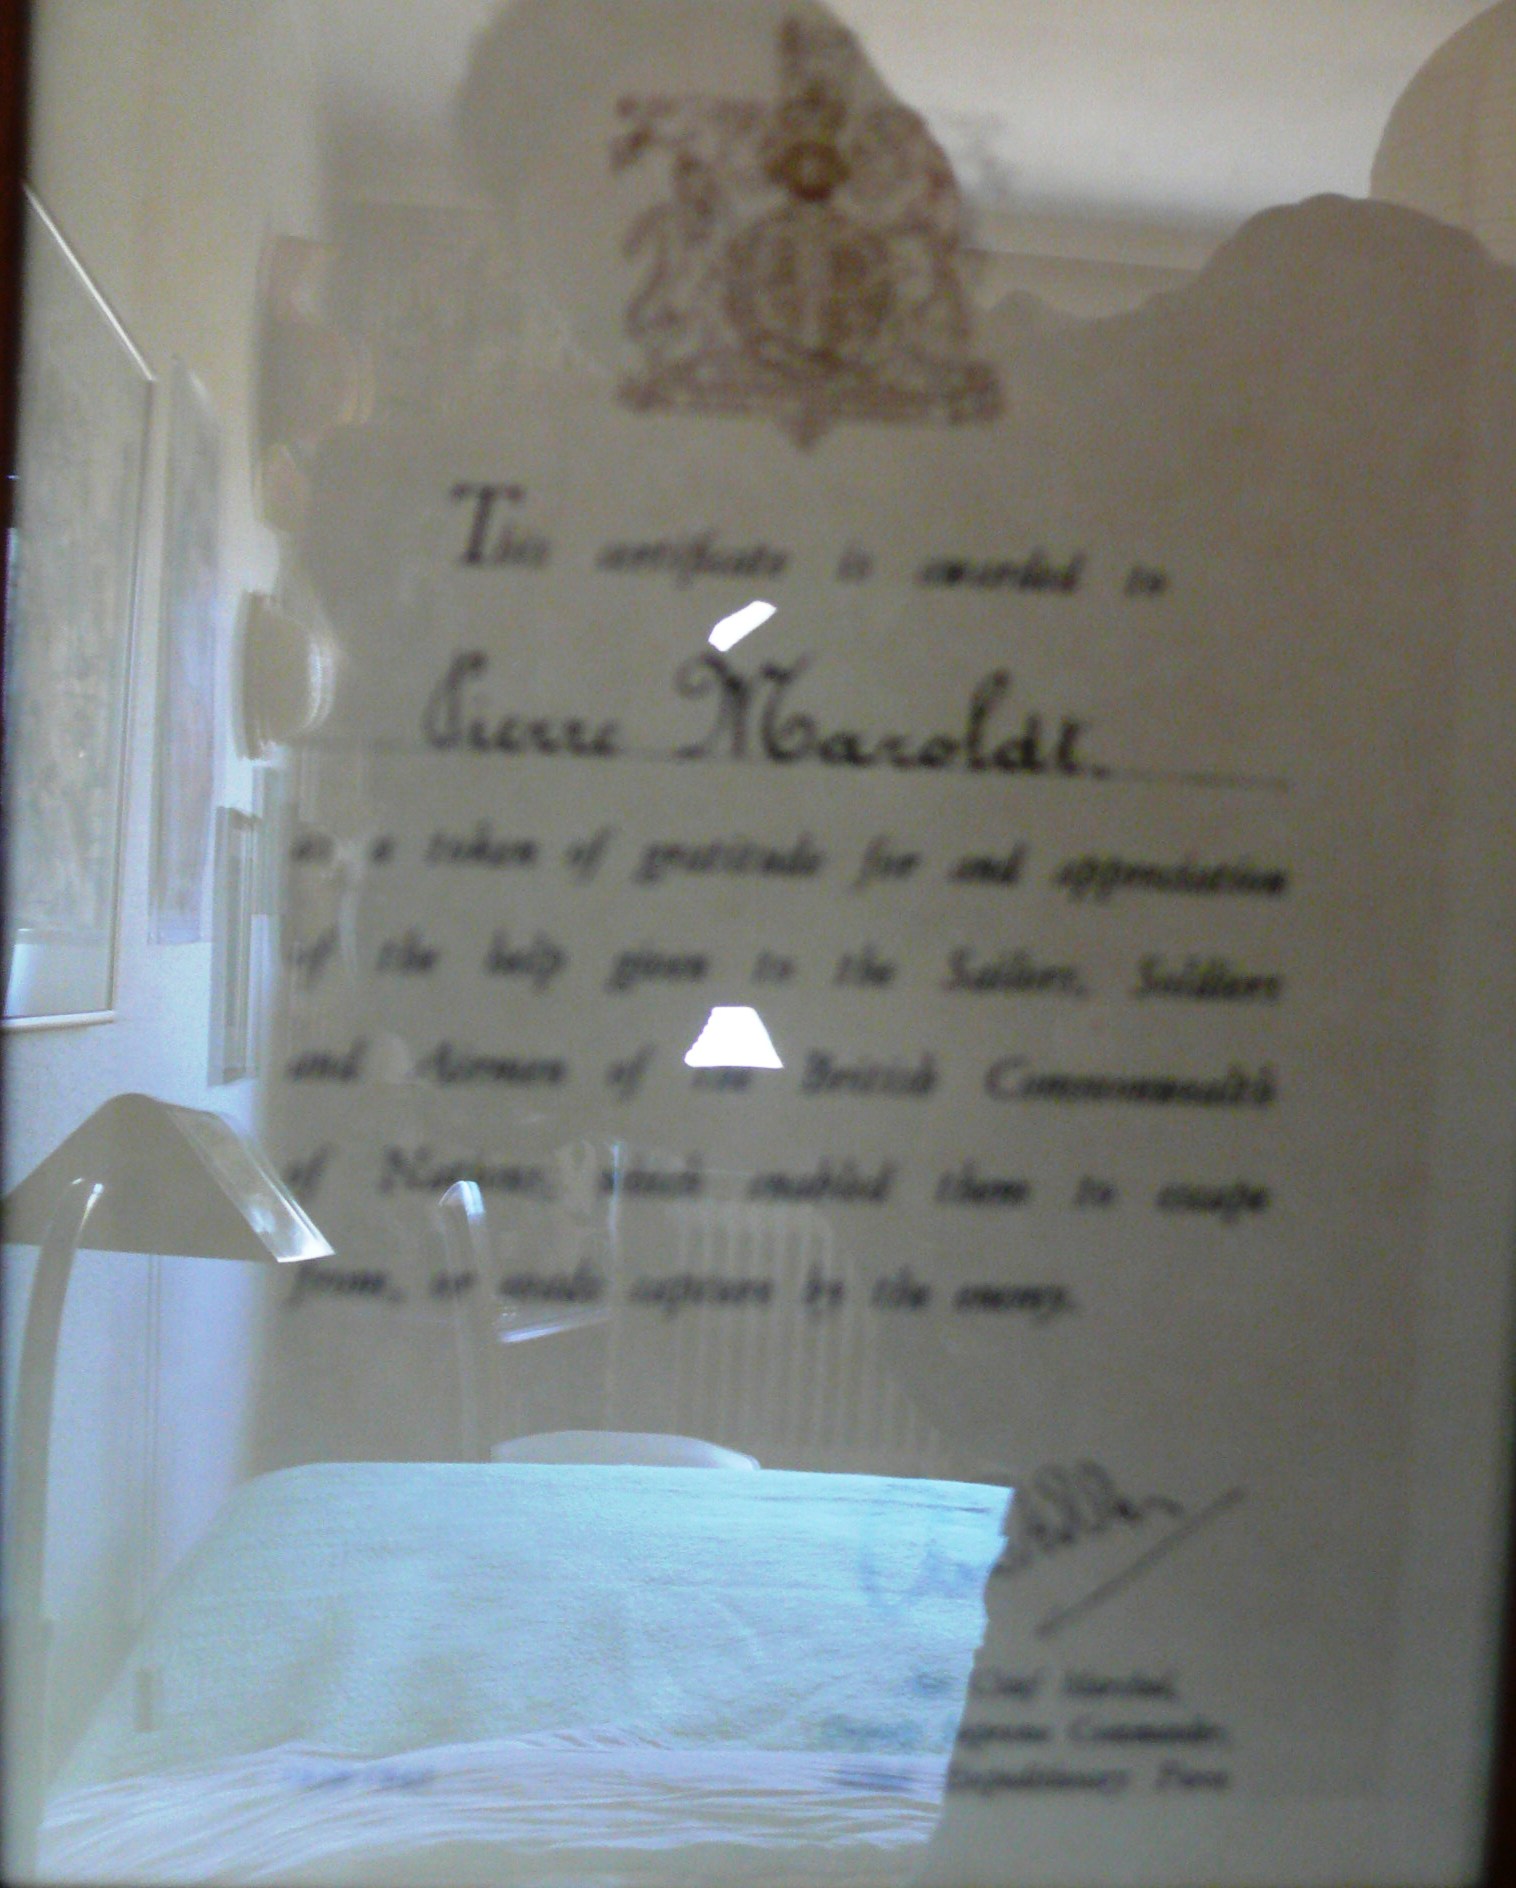 This certificate is awarded to
Pierre Maroldt.
as a token of gratitude for and appreciation
of the help given to the Sailors, Soldiers
and Airmen of the British Commonwealth
of Nations, which enabled them to escape
from, or evade capture by the enemy.
Chief Marshal,
Supreme Commander,
Expeditionary Force